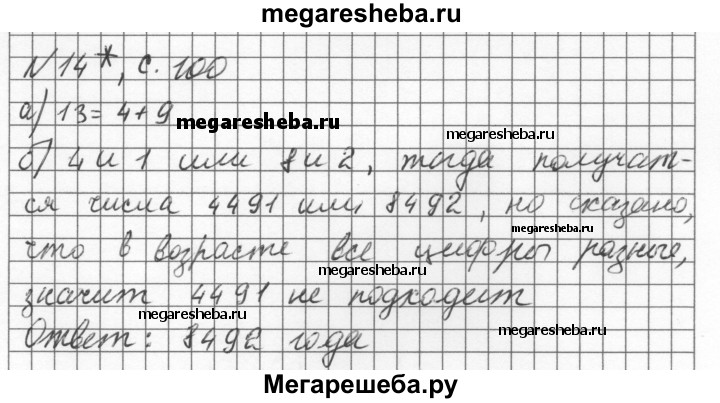 megaresheba.ru
№ 14*, с. 100
а) 13 = 4 + 9
megaresheba.ru
megaresheba.ru
б) 4 и 1 или 8 и 2, тогда получат-
ся числа 4491 или 8492, но сказано,
megaresheba.ru
что в возрасте все цифры разные,
megaresheba.ru
значит 4491 не подходит
Ответ: 8492 года
megaresheba.ru
Мегарешеба.ру